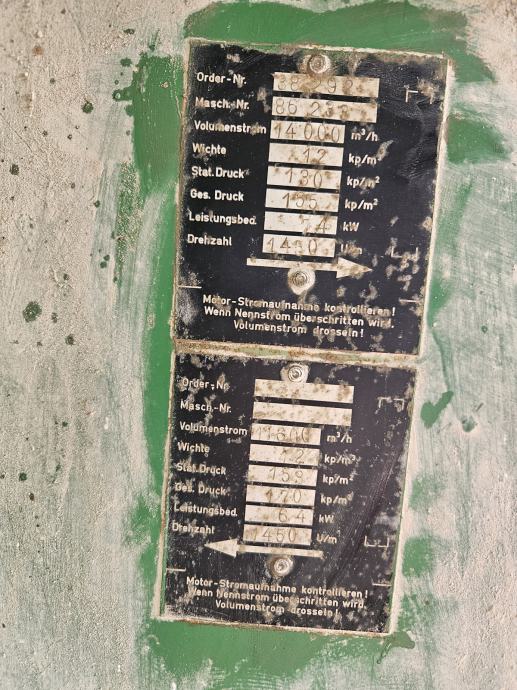 Order-Nr. 38 292
Masch.-Nr. 86
Volumenstrom 14000 m³/h
Wichte 1,2 kp/m³
Stat. Druck 130 kp/m²
Ges. Druck 155 kp/m²
Leistungsbed. 7,4 kW
Drehzahl 1450 U/m
Motor-Stromaufnahme kontrollieren!
Wenn Nennstrom überschritten wird,
Volumenstrom drosseln!
Order-Nr.
Masch.-Nr.
Volumenstrom m³/h
Wichte 1,2 kp/m³
Stat. Druck kp/m²
Ges. Druck 170 kp/m²
Leistungsbed. 6,4 kW
Drehzahl 1450 U/m
Motor-Stromaufnahme kontrollieren!
Wenn Nennstrom überschritten wird,
Volumenstrom drosseln!